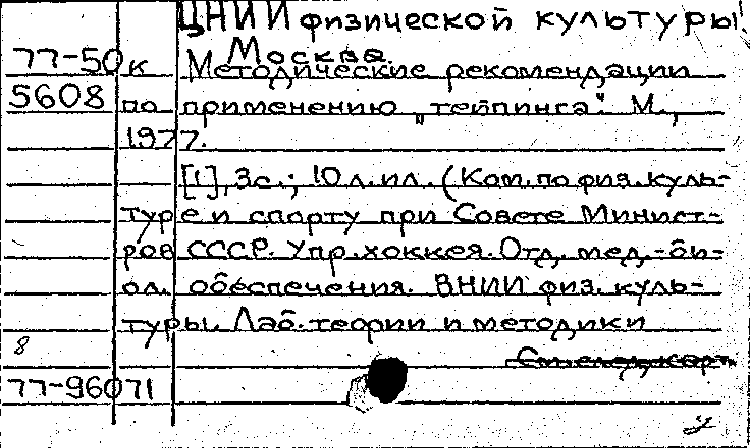 ЦНИИ физической культуры.
Москва.
77-50к Методические рекомендации
5608 по применению "тейпинга". М.,
1977.
[1], 3с.; 10 л.ил. (Ком. по физ.куль-
туре и спорту при Совете Минист-
ров СССР. Упр.хоккея. Отд. мед.-би-
ол. обеспечения. ВНИИ физ. куль-
туры. Лаб. теории и методики
8
См.след.карт
77-96071